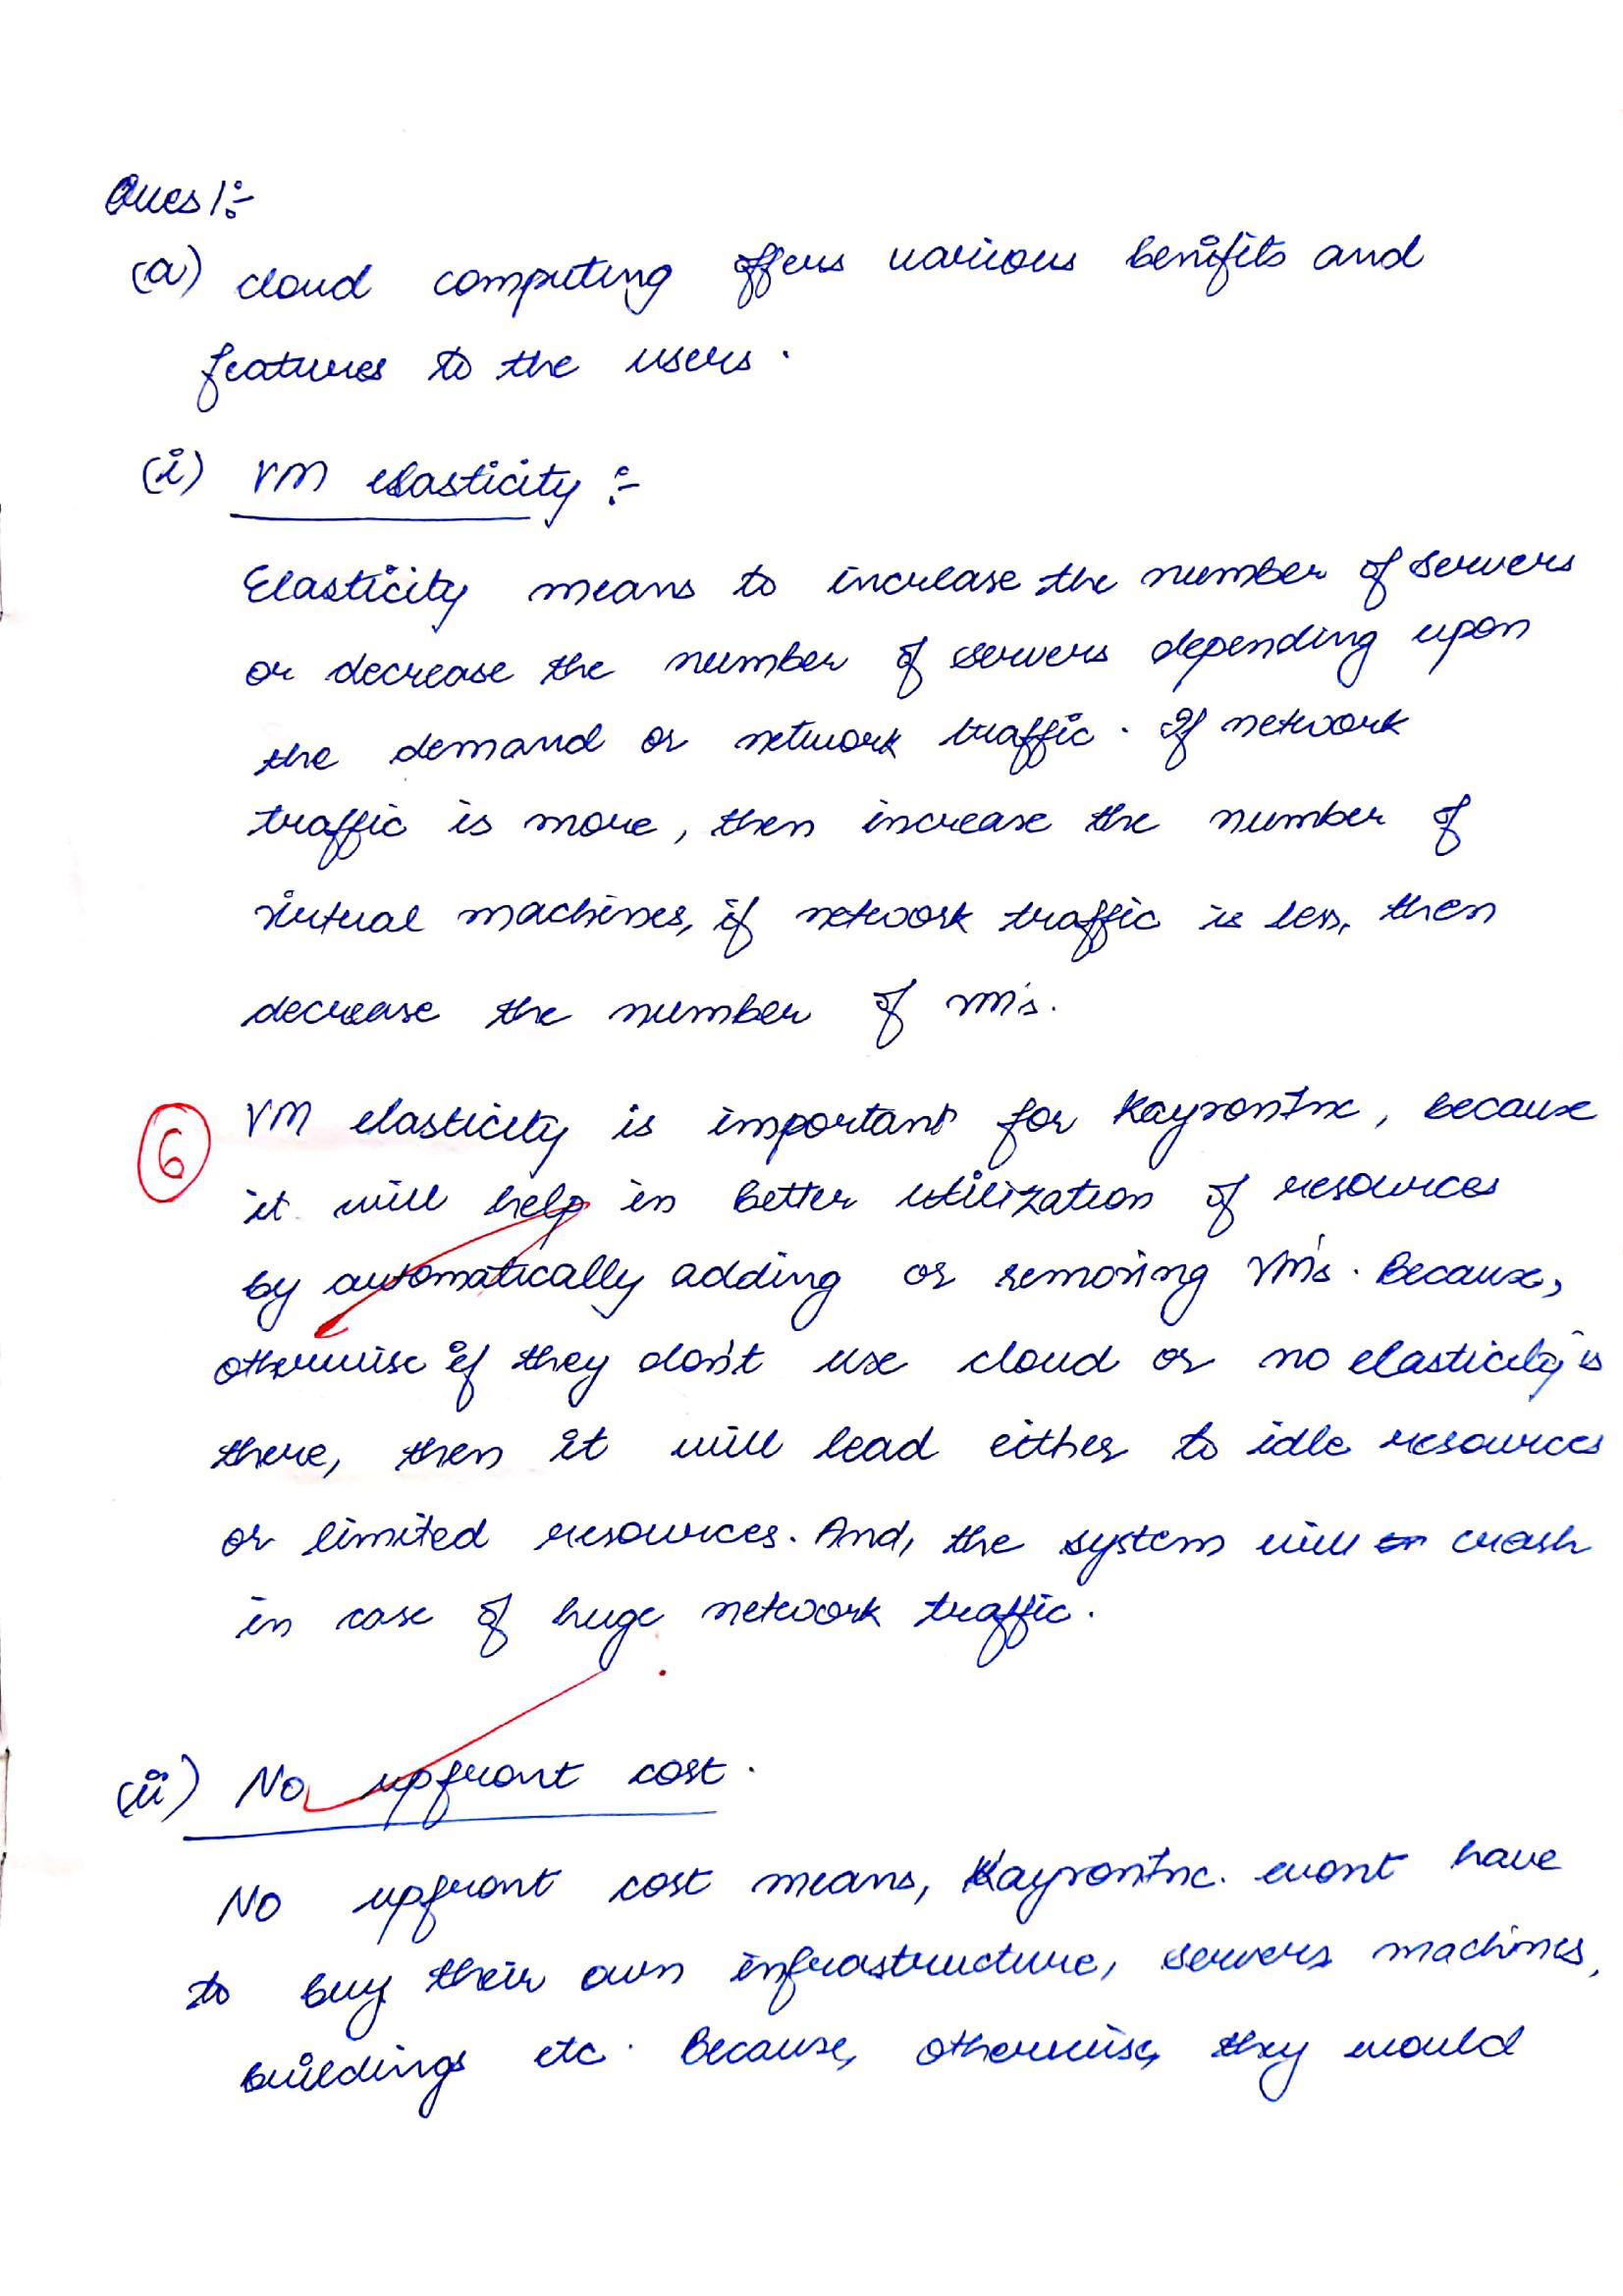 Ques 1:-
(a) cloud computing offers various benifits and
features to the users.
(i) VM elasticity :-
Elasticity means to increase the number of servers
or decrease the number of servers depending upon
the demand or network traffic. If network
traffic is more, then increase the number of
virtual machines, if network traffic is less, then
decrease the number of VM's.
6
VM elasticity is important for KayronInc, because
it will help in better utilization of resources
by automatically adding or removing VM's. Because,
otherwise if they don't use cloud or no elasticity is
there, then it will lead either to idle resources
or limited resources. And, the system will crash
in case of huge network traffic.
(ii) No upfront cost.
No upfront cost means, KayronInc. wont have
to buy their own infrastructure, servers machines,
buildings etc. Because, otherwise, they would